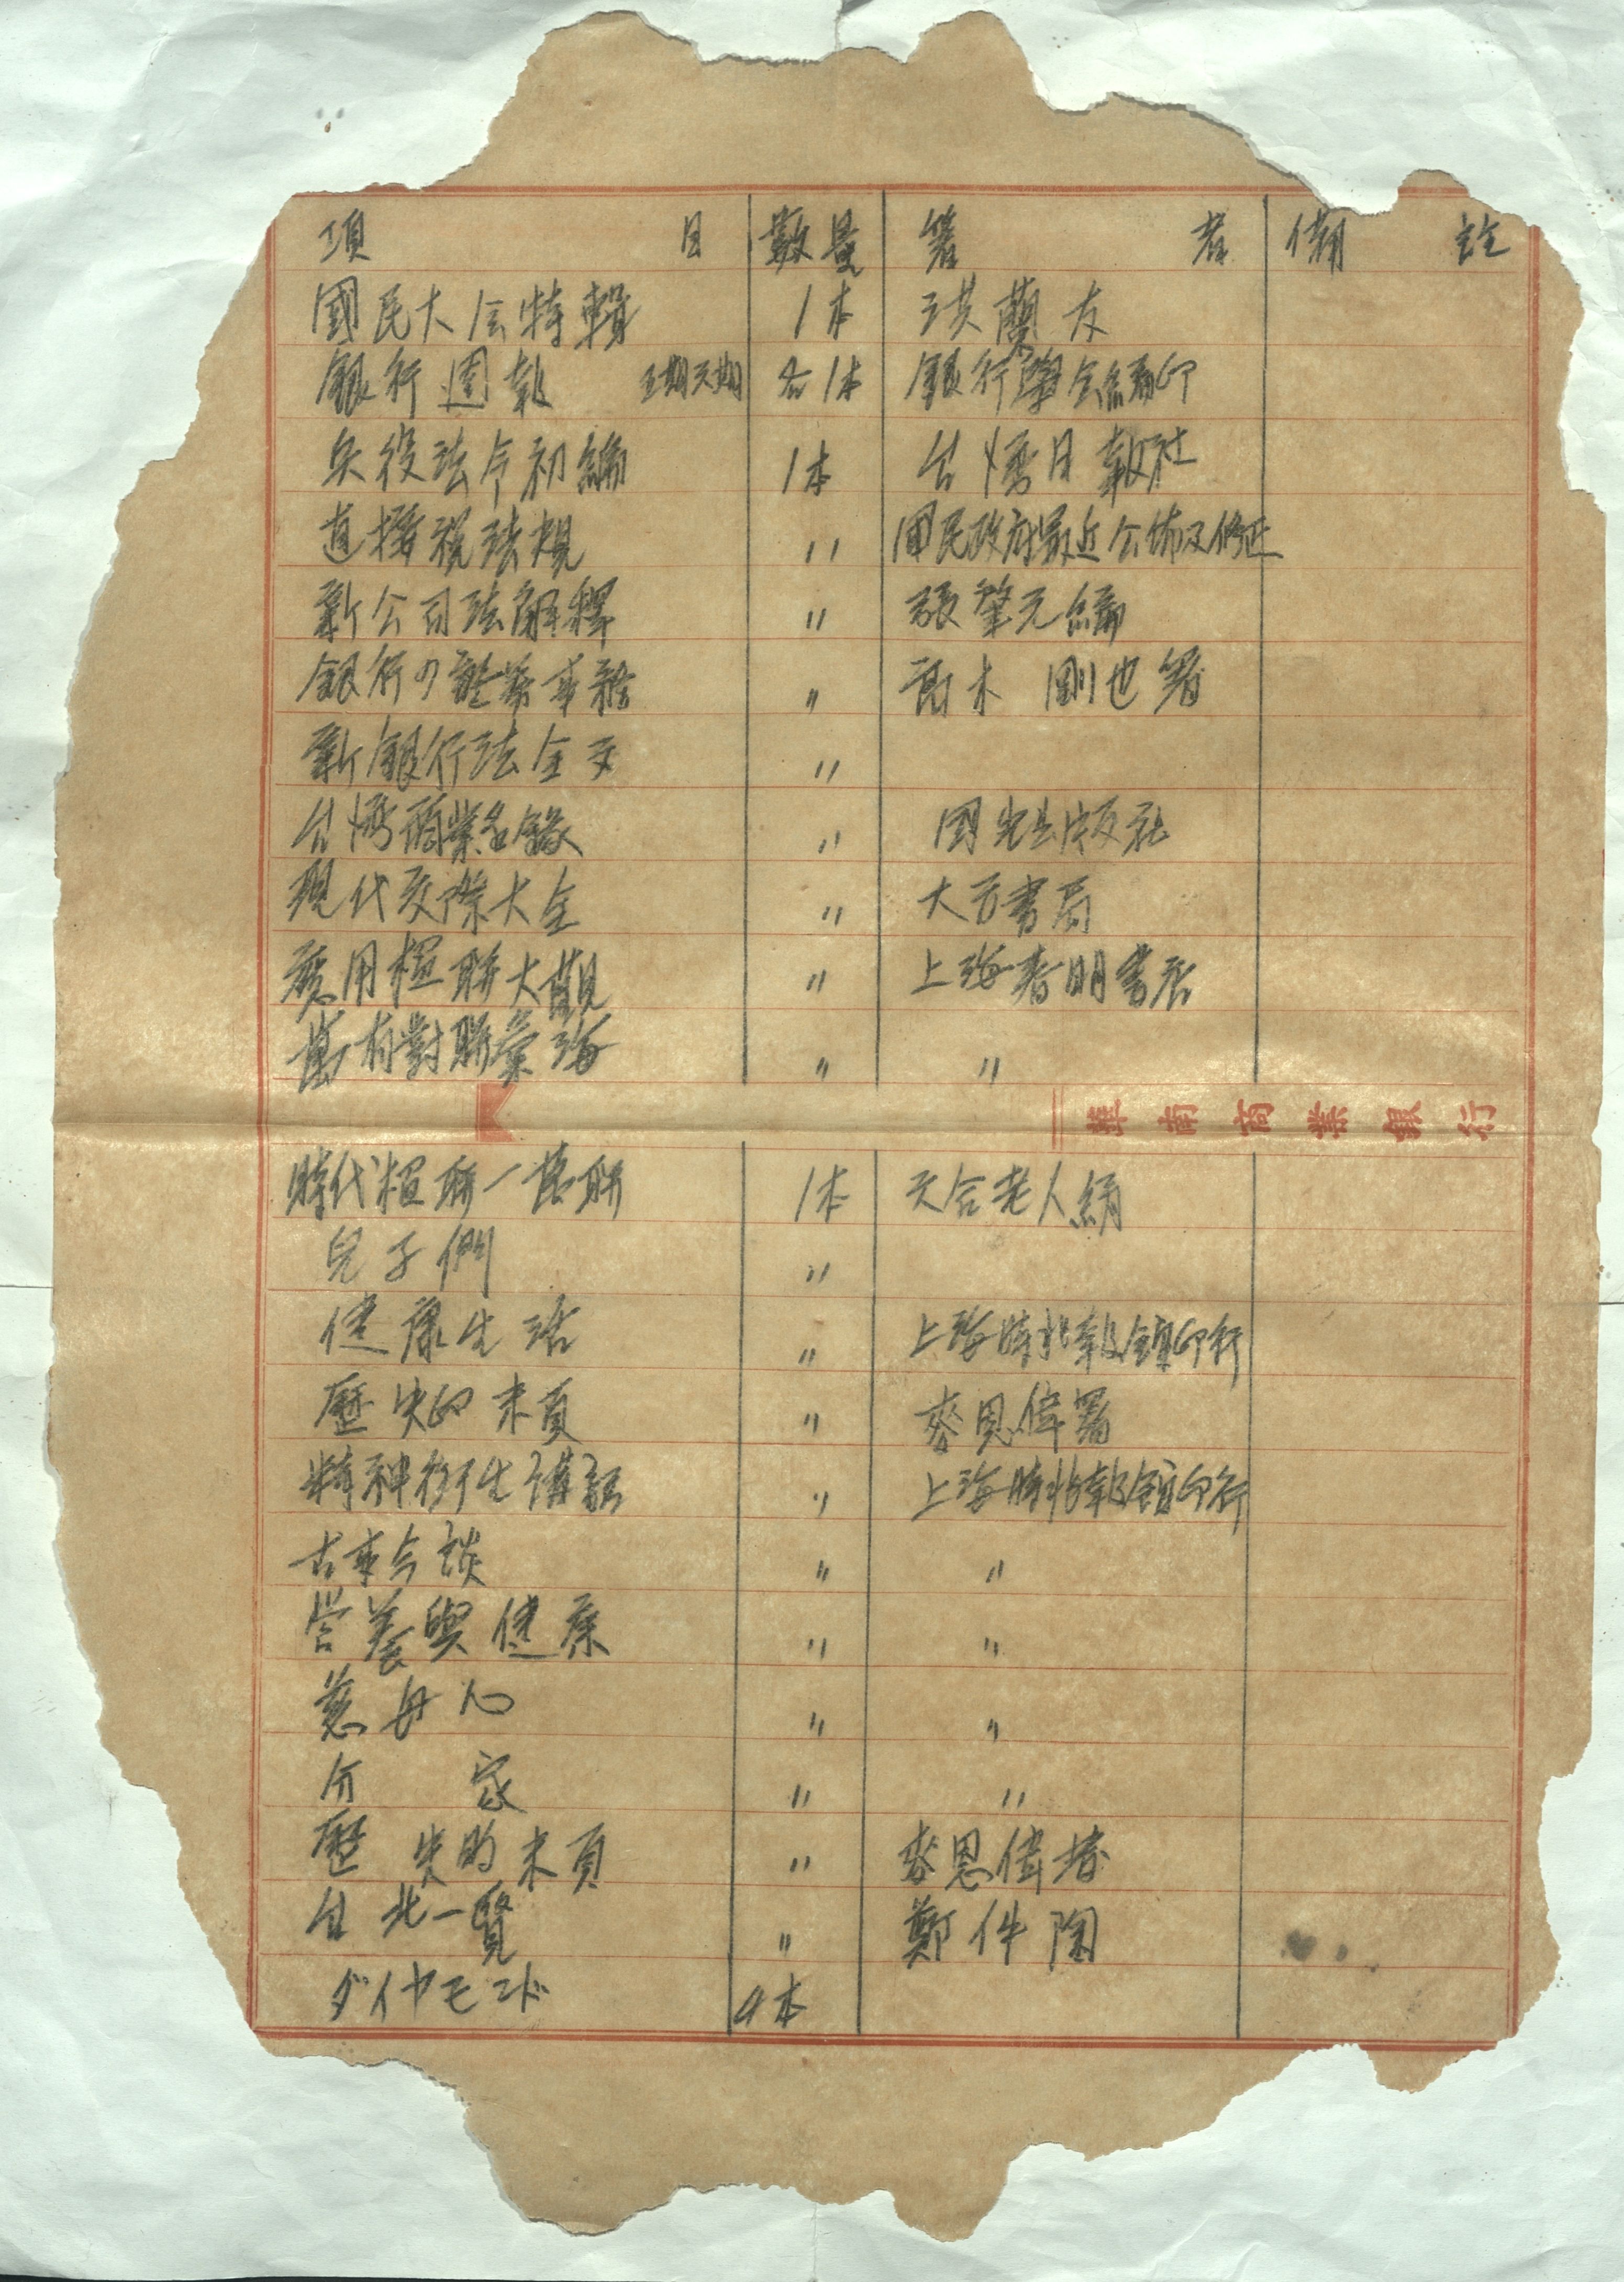 項目 數量 著者 備註
國民大会特輯 1本 洪蘭友
銀行週報 各1本 銀行學会編印
兵役法令初編 1本 台湾日報社
直接税法規 〃 國民政府最近公佈及修正
新公司法解釋 〃 張肇元編
銀行の 〃 高木 剛也著
新銀行法全文 〃
台湾商業名録 〃 國光出版社
現代交際大全 〃 大方書局
應用楹聯大觀 〃 上海春明書店
萬有對聯彙海 〃 〃
華南商業銀行
時代楹聯一萬聯 1本 天台老人編
兒子們 〃
健康生活 〃 上海時兆報館印行
歷史的末頁 〃 麥恩偉著
精神衛生講話 〃 上海時兆報館印行
古事今談 〃 〃
營養與健康 〃 〃
慈母心 〃 〃
家 〃 〃
歷史的末頁 〃 麥恩偉著
台北一覽 〃 鄭
ダイヤモンド 4本